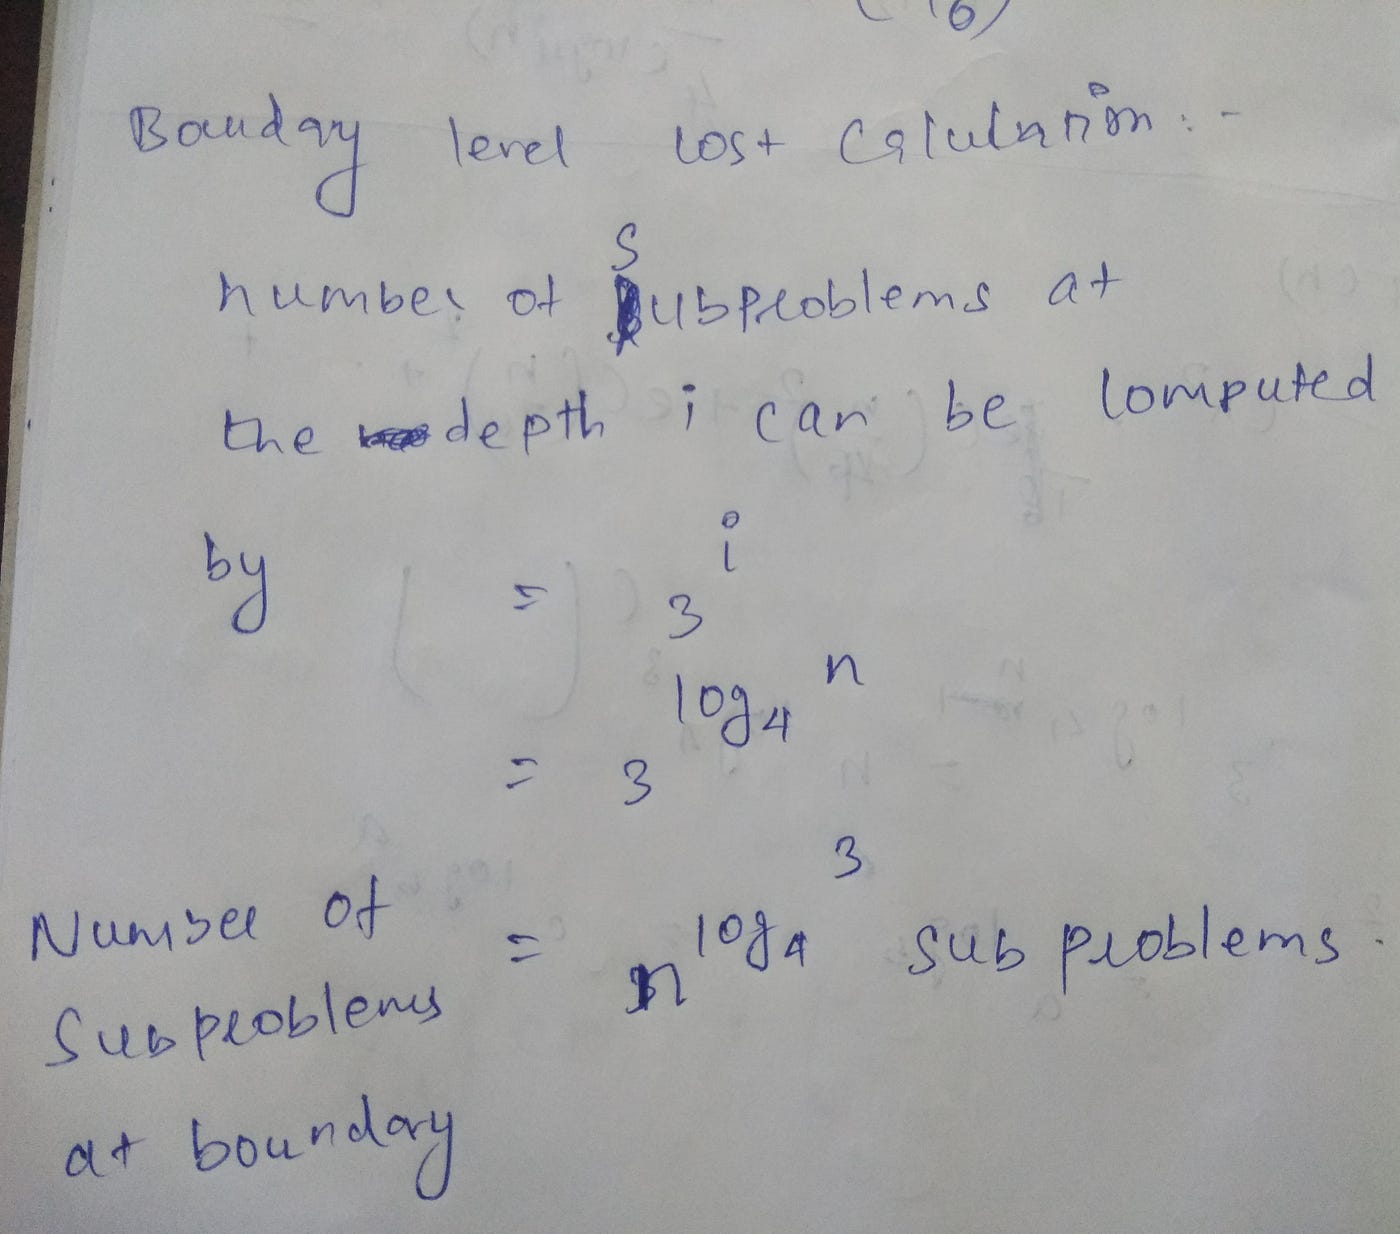 Bouday level cost Calulation :-
number of Subproblems at
the depth i can be computed
by = 3^i
= 3^log₄ n
Number of
Subproblems
at boundary
= n^log₄ 3 sub problems.